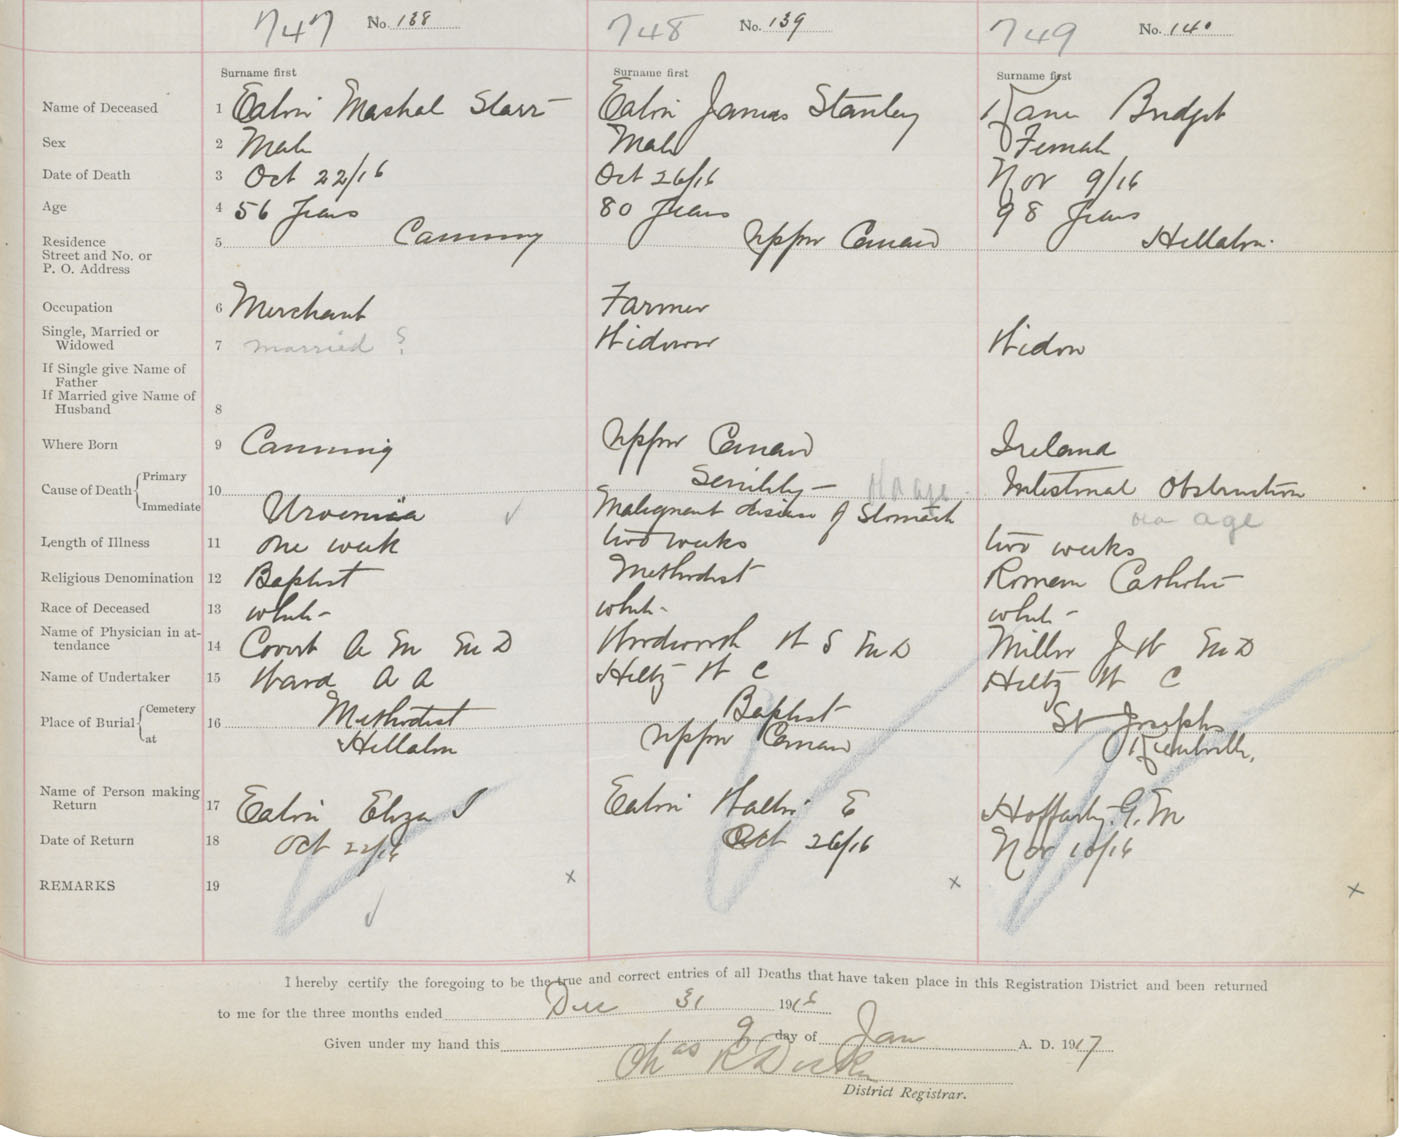 747 No. 138
748 No. 139
749 No. 140
Surname first
Surname first
Surname first
Name of Deceased 1 Eaton Mashal Starr
Eaton James Stanley
Kane Bridget
Sex 2 Male
Male
Female
Date of Death 3 Oct 22/16
Oct 26/16
Nov 9/16
Age 4 56 years
80 years
98 years
Residence
Street and No. or
P. O. Address
5 Canning
Upper Canard
Hillaton
Occupation 6 Merchant
Farmer
Single, Married or
Widowed
7 married ?
Widower
Widow
If Single give Name of
Father
If Married give Name of
Husband
8
Where Born 9 Canning
Upper Canard
Ireland
Cause of Death { Primary
Immediate
10
Uraemia
Senility
Malignant disease of Stomach
Intestinal Obstruction
age
Length of Illness 11 one week
two weeks
two weeks
Religious Denomination 12 Baptist
Methodist
Roman Catholic
Race of Deceased 13 white
white
white
Name of Physician in at-
tendance
14 Covert A M M D
Woodworth W S M D
Miller J W M D
Name of Undertaker 15 Ward A A
Hiltz W C
Hiltz W C
Place of Burial { Cemetery
at
16 Methodist
Hillaton
Baptist
Upper Canard
St Josephs
Kentville.
Name of Person making
Return
17 Eaton Eliza J
Eaton Walter E
Hoffarty. G. M
Date of Return 18 Oct 22/16
Oct 26/16
Nov 10/16
REMARKS 19 x
x
x
I hereby certify the foregoing to be the true and correct entries of all Deaths that have taken place in this Registration District and been returned
to me for the three months ended Dec 31 1916
Given under my hand this 9 day of Jan A. D. 1917
Chas R
District Registrar.